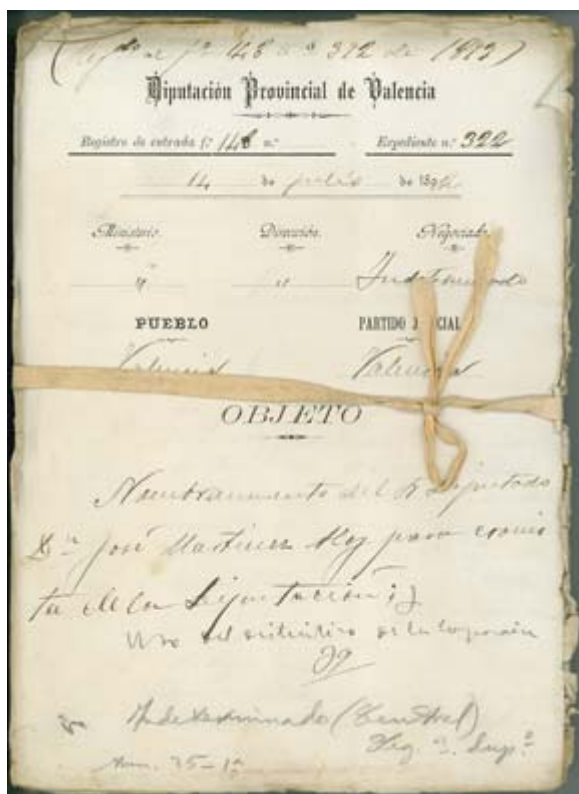 fº 148 nº 322 de 1892)
Diputación Provincial de Valencia
Registro de entrada fº 148 n.º Expediente n.º 322
14 de julio de 189
Ministerio. Dirección. Negociado.
" " Indeterminado
PUEBLO PARTIDO JUDICIAL
Valencia Valencia
OBJETO
Nombramiento del Sr Diputado
Dn José Martínez Aloy para cronis
ta de la Diputación; y
uso del distintivo de la Corporación
Indeterminado (Central)